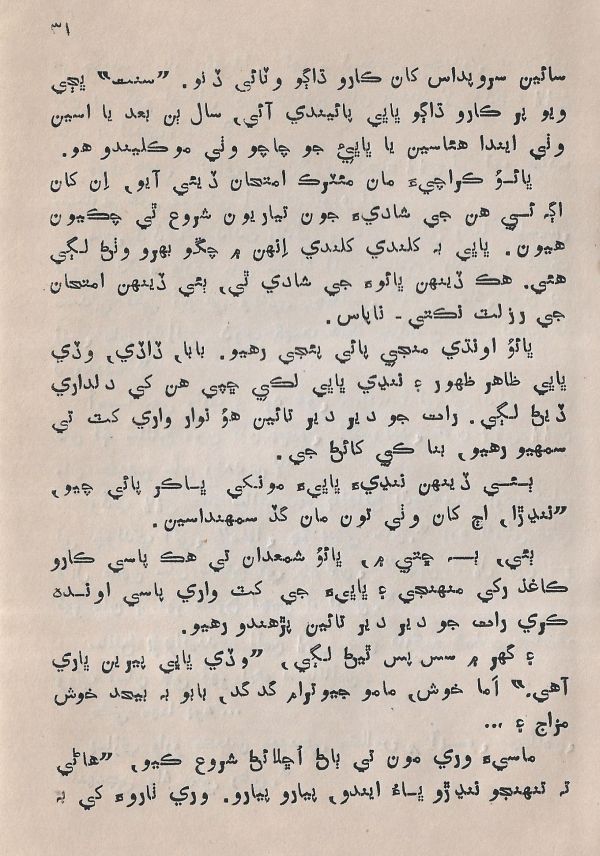 ۳۱
سائين سروپداس کان ڪارو ڌاڳو وٺائي ڏنو. ”سنت“ ڀڃي
ويو پر ڪارو ڌاڳو ڀاڀي پائيندي آئي، سال ٻن بعد يا اسين
وٽي ايندا هئاسين يا ڀاڀيءَ جو چاچو وٽي موڪليندو هو.
ڀاءُ ڪراچيءَ مان مئٽرڪ امتحان ڏيئي آيو، اِن کان
اڳ ئي هن جي شاديءَ جون تياريون شروع ٿي چڪيون
هيون. ڀاڀي بہ کلندي کلندي اِنهن ۾ چڱو بهرو وٺڻ لڳي
هئي. هڪ ڏينهن ڀائوءَ جي شادي ٿي، ٻئي ڏينهن امتحان
جي رزلٽ نڪتي۔ ناپاس.
ڀاءُ اونڌي منجي پائي پئجي رهيو. بابا، ڏاڏي، وڏي
ڀاڀي ظاهر ظهور ۽ ننڍي ڀاڀي لڪي ڇپي هن کي دلداري
ڏيڻ لڳي. رات جو دير دير تائين هوُ نوار واري کٽ تي
سمهيو رهيو، بنا ڪي کائڻ جي.
ٻئي ڏينهن ننڍيءَ ڀاڀيءَ مونکي ڀاڪر پائي چيو،
”ننڍڙا، اڄ کان وٺي تون مان گڏ سمهنداسين.
ٻئي، ٻہ ڇتي ۾، ڀاءُ شمعدان تي هڪ پاسي ڪارو
ڪاغذ رکي منهنجي ۽ ڀاڀيءَ جي کٽ واري پاسي اونده
ڪري رات جو دير دير تائين پڙهندو رهيو.
۽ گهر ۾ سس پس ٿيڻ لڳي، ”وڏي ڀاڀي پيرين ڀاري
آهي.“ اَما خوش، مامو جيوترام گد گد، بابو بہ بيحد خوش
مزاج ۽ ...
ماسيءَ وري مون تي ٻاڻ اُڇلائڻ شروع ڪيو، ”هاڻي
تہ تنهنجو ننڍڙو ڀاءُ ايندو، پيارو پيارو. وري ناروءَ کي بہ